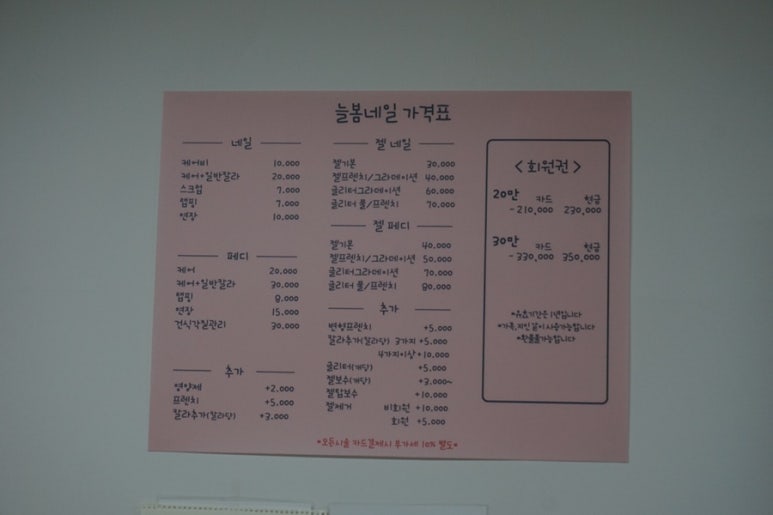 늘봄네일 가격표
네일
케어비 10,000
케어+일반칼라 20,000
스크럽 7,000
랩핑 7,000
연장 10,000
페디
케어 20,000
케어+일반칼라 30,000
랩핑 8,000
연장 15,000
건식각질관리 30,000
추가
영양제 +2,000
프렌치 +5,000
칼라추가(칼라당) +3,000
젤 네일
젤기본 30,000
젤프렌치/그라데이션 40,000
글리터그라데이션 60,000
글리터 풀/프렌치 70,000
젤 페디
젤기본 40,000
젤프렌치/그라데이션 50,000
글리터그라데이션 70,000
글리터 풀/프렌치 80,000
추가
변형프렌치 +5,000
칼라추가(칼라당) 3가지 +5,000
4가지이상 +10,000
글리터(개당) +5,000
젤보수(개당) +3,000~
젤탑보수 +10,000
젤제거 비회원 +10,000
회원 +5,000
<회원권>
20만 카드 현금
-210,000 230,000
30만 카드 현금
-330,000 350,000
*유효기간은 1년입니다
*가족,지인 같이 사용가능합니다
*환불불가능합니다
*모든시술 카드결제시 부가세 10% 별도*